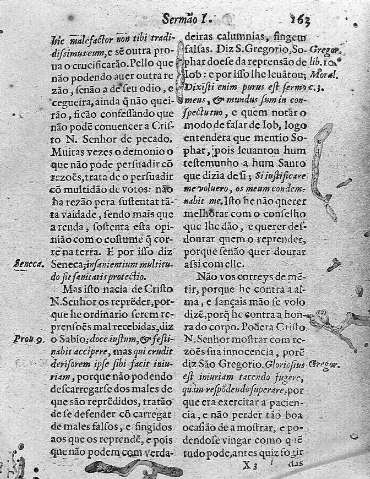 Sermão I. 163
hic malefactor non tibi tradi-
dissimus eum, e sẽ outra pro-
ua o crucificarão. Pello que
não podendo auer outra re
zão, senão a de seu odio, e
cegueira, ainda q̃ não quei-
rão, ficão confessando que
não podẽ conuencer a Cris-
to N. Senhor de peccado.
Muitas vezes o demonio o
que não pode persuadir cõ
rezões, trata de o persuadir
cõ multidão de votos: não
ha rezão pera sustentar tã-
ta vaidade, sendo mais que
a renda, sostenta esta opi-
nião com o costume q̃ cor-
re na terra. E por isso diz
Seneca. Seneca; insanientium multitu-
do sit sanitatis protectio.
Mas isto nacia de Cristo
N. Senhor os reprẽder, por-
que he ordinario serem re-
prensoẽs mal recebidas, diz
Prou. 9. o Sabio; doce iustum, & festi-
nabit accipere, mas qui erudit
derisorem ipse sibi facit iniu-
riam, porque não podendo
descarregarse dos males de
que são reprẽdidos, tratão
de se defender cõ carregar
de males falsos, e fingidos
aos que os reprendẽ, e pois
que não podem com verda-
deiras calumnias, fingem
falsas. Diz S. Gregorio, So- Gregor.
phar doese da reprensão de lib. 10.
Iob: e por isso lhe leuãtou; Moral.
Dixisti enim purus est sermo c. 3.
meus, & mundus sum in con-
spectu tuo, e quem notar o
modo de falar de Iob, logo
entendera que mentio So-
phar, pois leuantou hum
testemunho a hum Santo
que dizia de si; Si iustificare
me voluero, os meum condem-
nabit me, Isto he não querer
melhorar com o conselho
que lhe dão, e querer des-
dourar quem o reprender,
porque senão quer dourar
assi com elle.
Não vos correys de mẽ-
tir, porque he contra a al-
ma, e lançais mão se volo
dizẽ, porq̃ he contra a hon-
ra do corpo. Podera Cristo
N. Senhor mostrar com re-
zoẽs sua innocencia, porẽ
diz São Gregorio, Gloriosius Gregor.
est iniuriam tacendo fugere,
quàm respõdendo superare, por
que era exercitar a pacien-
cia, e não perder tão boa
ocasião de a mostrar, e po-
dendose vingar como que
tudo pode, antes quiz sofrir
X 3 das